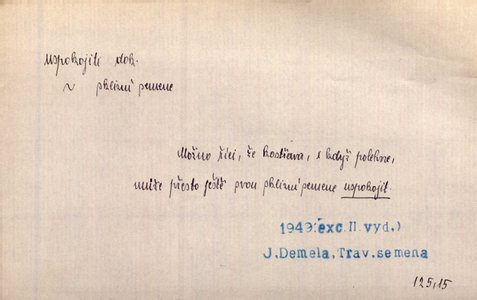 uspokojiti dok.
~ sklizní semene
Možno říci, že kostřava, i když polehne,
může přesto ještě svou sklizní semene uspokojit.
1949 exc. II vyd.)
J. Demela, Trav. semena
125,15